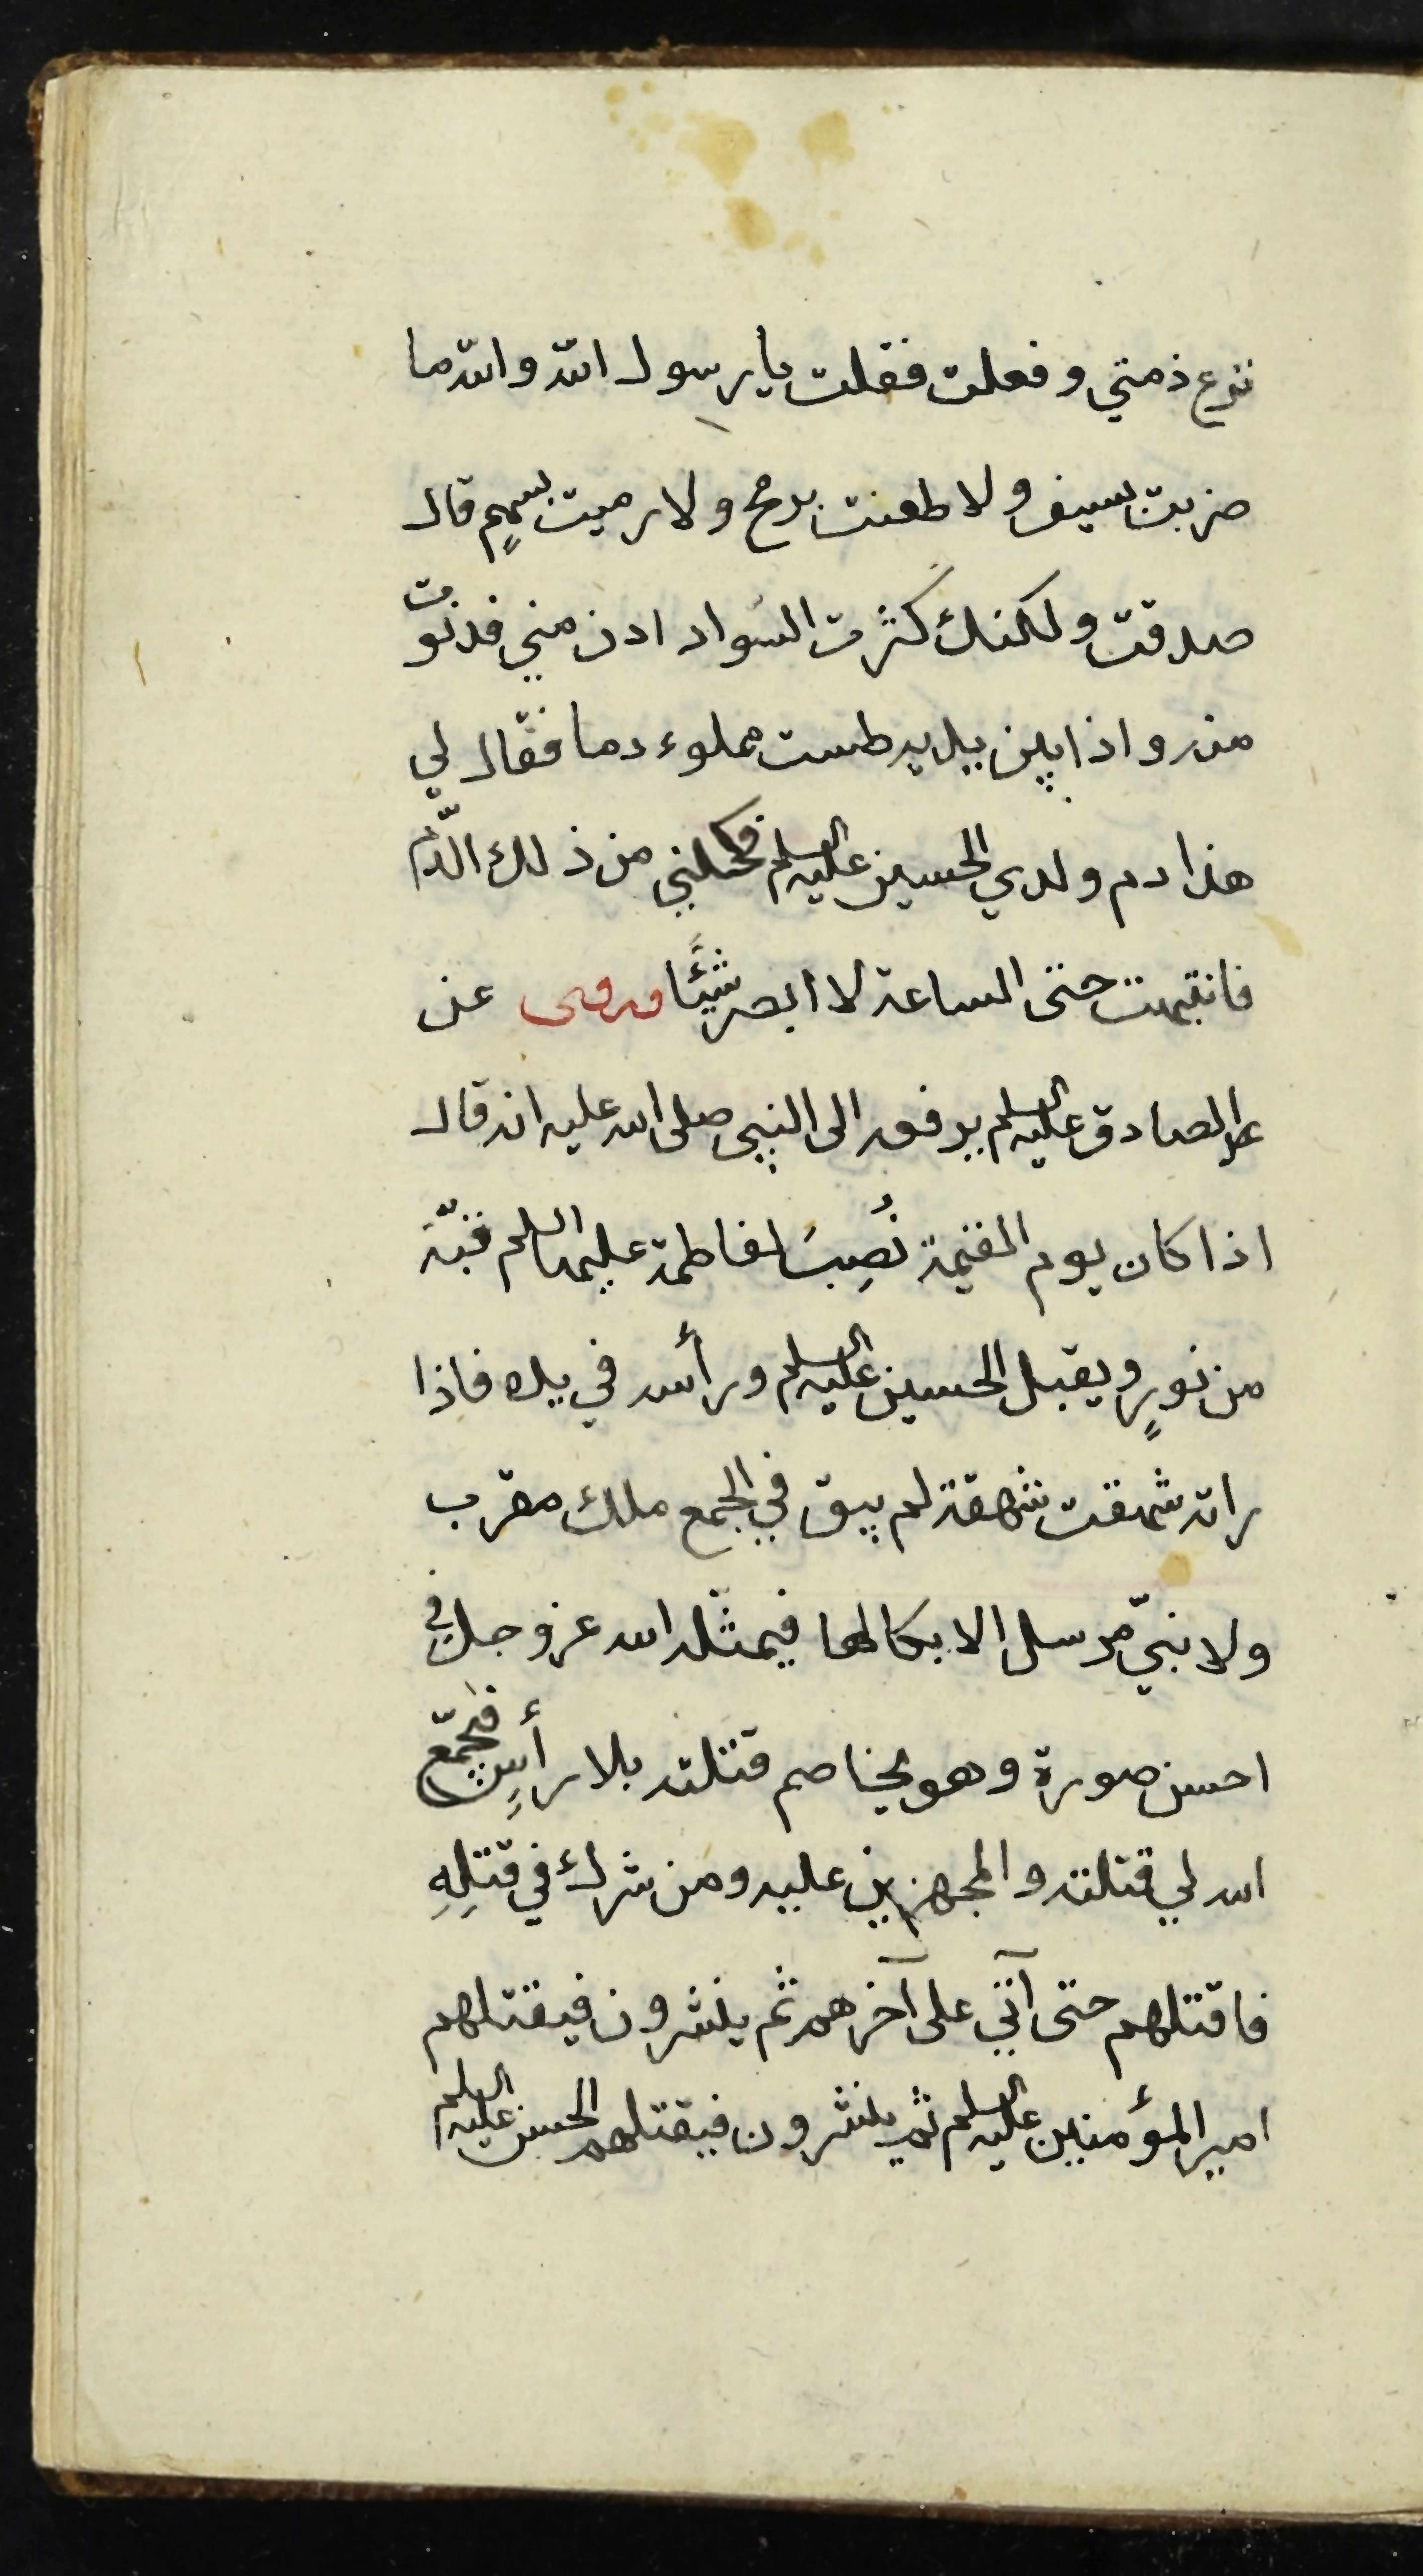 ترع ذمتي وفعلت فقلت يا رسول الله والله ما
ضربت بسيف ولا طعنت برمح ولا رميت بسهمٍ قال
صدقت ولكنك كثرت السواد ادن مني فدنوت
منه واذا بين يديه طست مملوء دما فقال لي
هذا دم ولدي الحسين عليه السلم فكحلني من ذلك الدّم
فانتبهت حتى الساعة لا ابصر شيئًا وروى عن
الصادق عليه السلم يرفعه الى النبي صلى الله عليه انه قال
اذا كان يوم القيمة نُصِبَ لفاطمة عليها السلم قبّة
من نورٍ ويقبل الحسين عليه السلم ورأسه في يده فاذا
راته شهقت شهقة لم يبق في الجمع ملك مقرب
ولا نبيّ مرسل الا بكا لها فيمثّله الله عز وجل في
احسن صورة وهو يخاصم قتلته بلا رأسٍ فيجمّع
الله لي قتلته والمجهزين عليه ومن شرك في قتلِهِ
فاقتلهم حتى آتي على آخرهم ثم ينشرون فيقتلهم
امير المؤمنين عليه السلم ثم ينشرون فيقتلهم الحسن عليه السلم